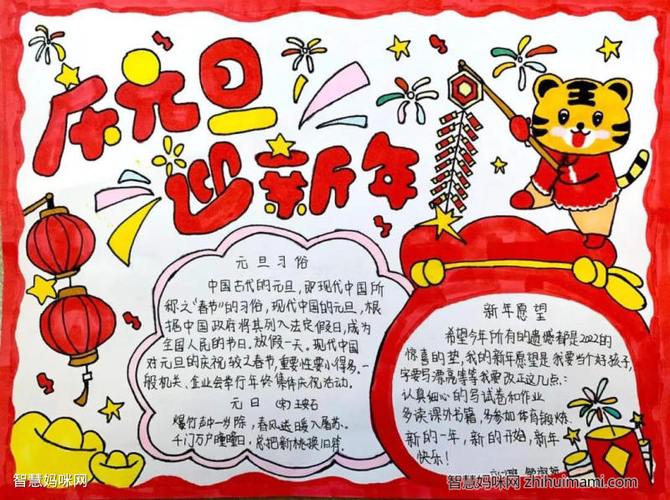 庆元旦
迎新年
元旦习俗
中国古代的元旦，即现代中国所
称之“春节”的习俗，现代中国的元旦，根
据中国政府将其列入法定假日，成为
全国人民的节日。放假一天。现代中国
对元旦的庆祝较之春节，重要性要小得多。一
般机关、企业会举行年终集体庆祝活动。
元日 (宋)王安石
爆竹声中一岁除，春风送暖入屠苏。
千门万户曈曈日，总把新桃换旧符。
新年愿望
希望今年所有的遗憾都是2022的
惊喜的垫，我的新年愿望是我要当个好孩子，
字要写漂亮等等我要改正这几点：
认真细心的写试卷和作业
多读课外书籍，多参加体育锻炼
新的一年，新的开始，新年
快乐！
智慧妈咪网
智慧妈咪网 zhihuimami.com